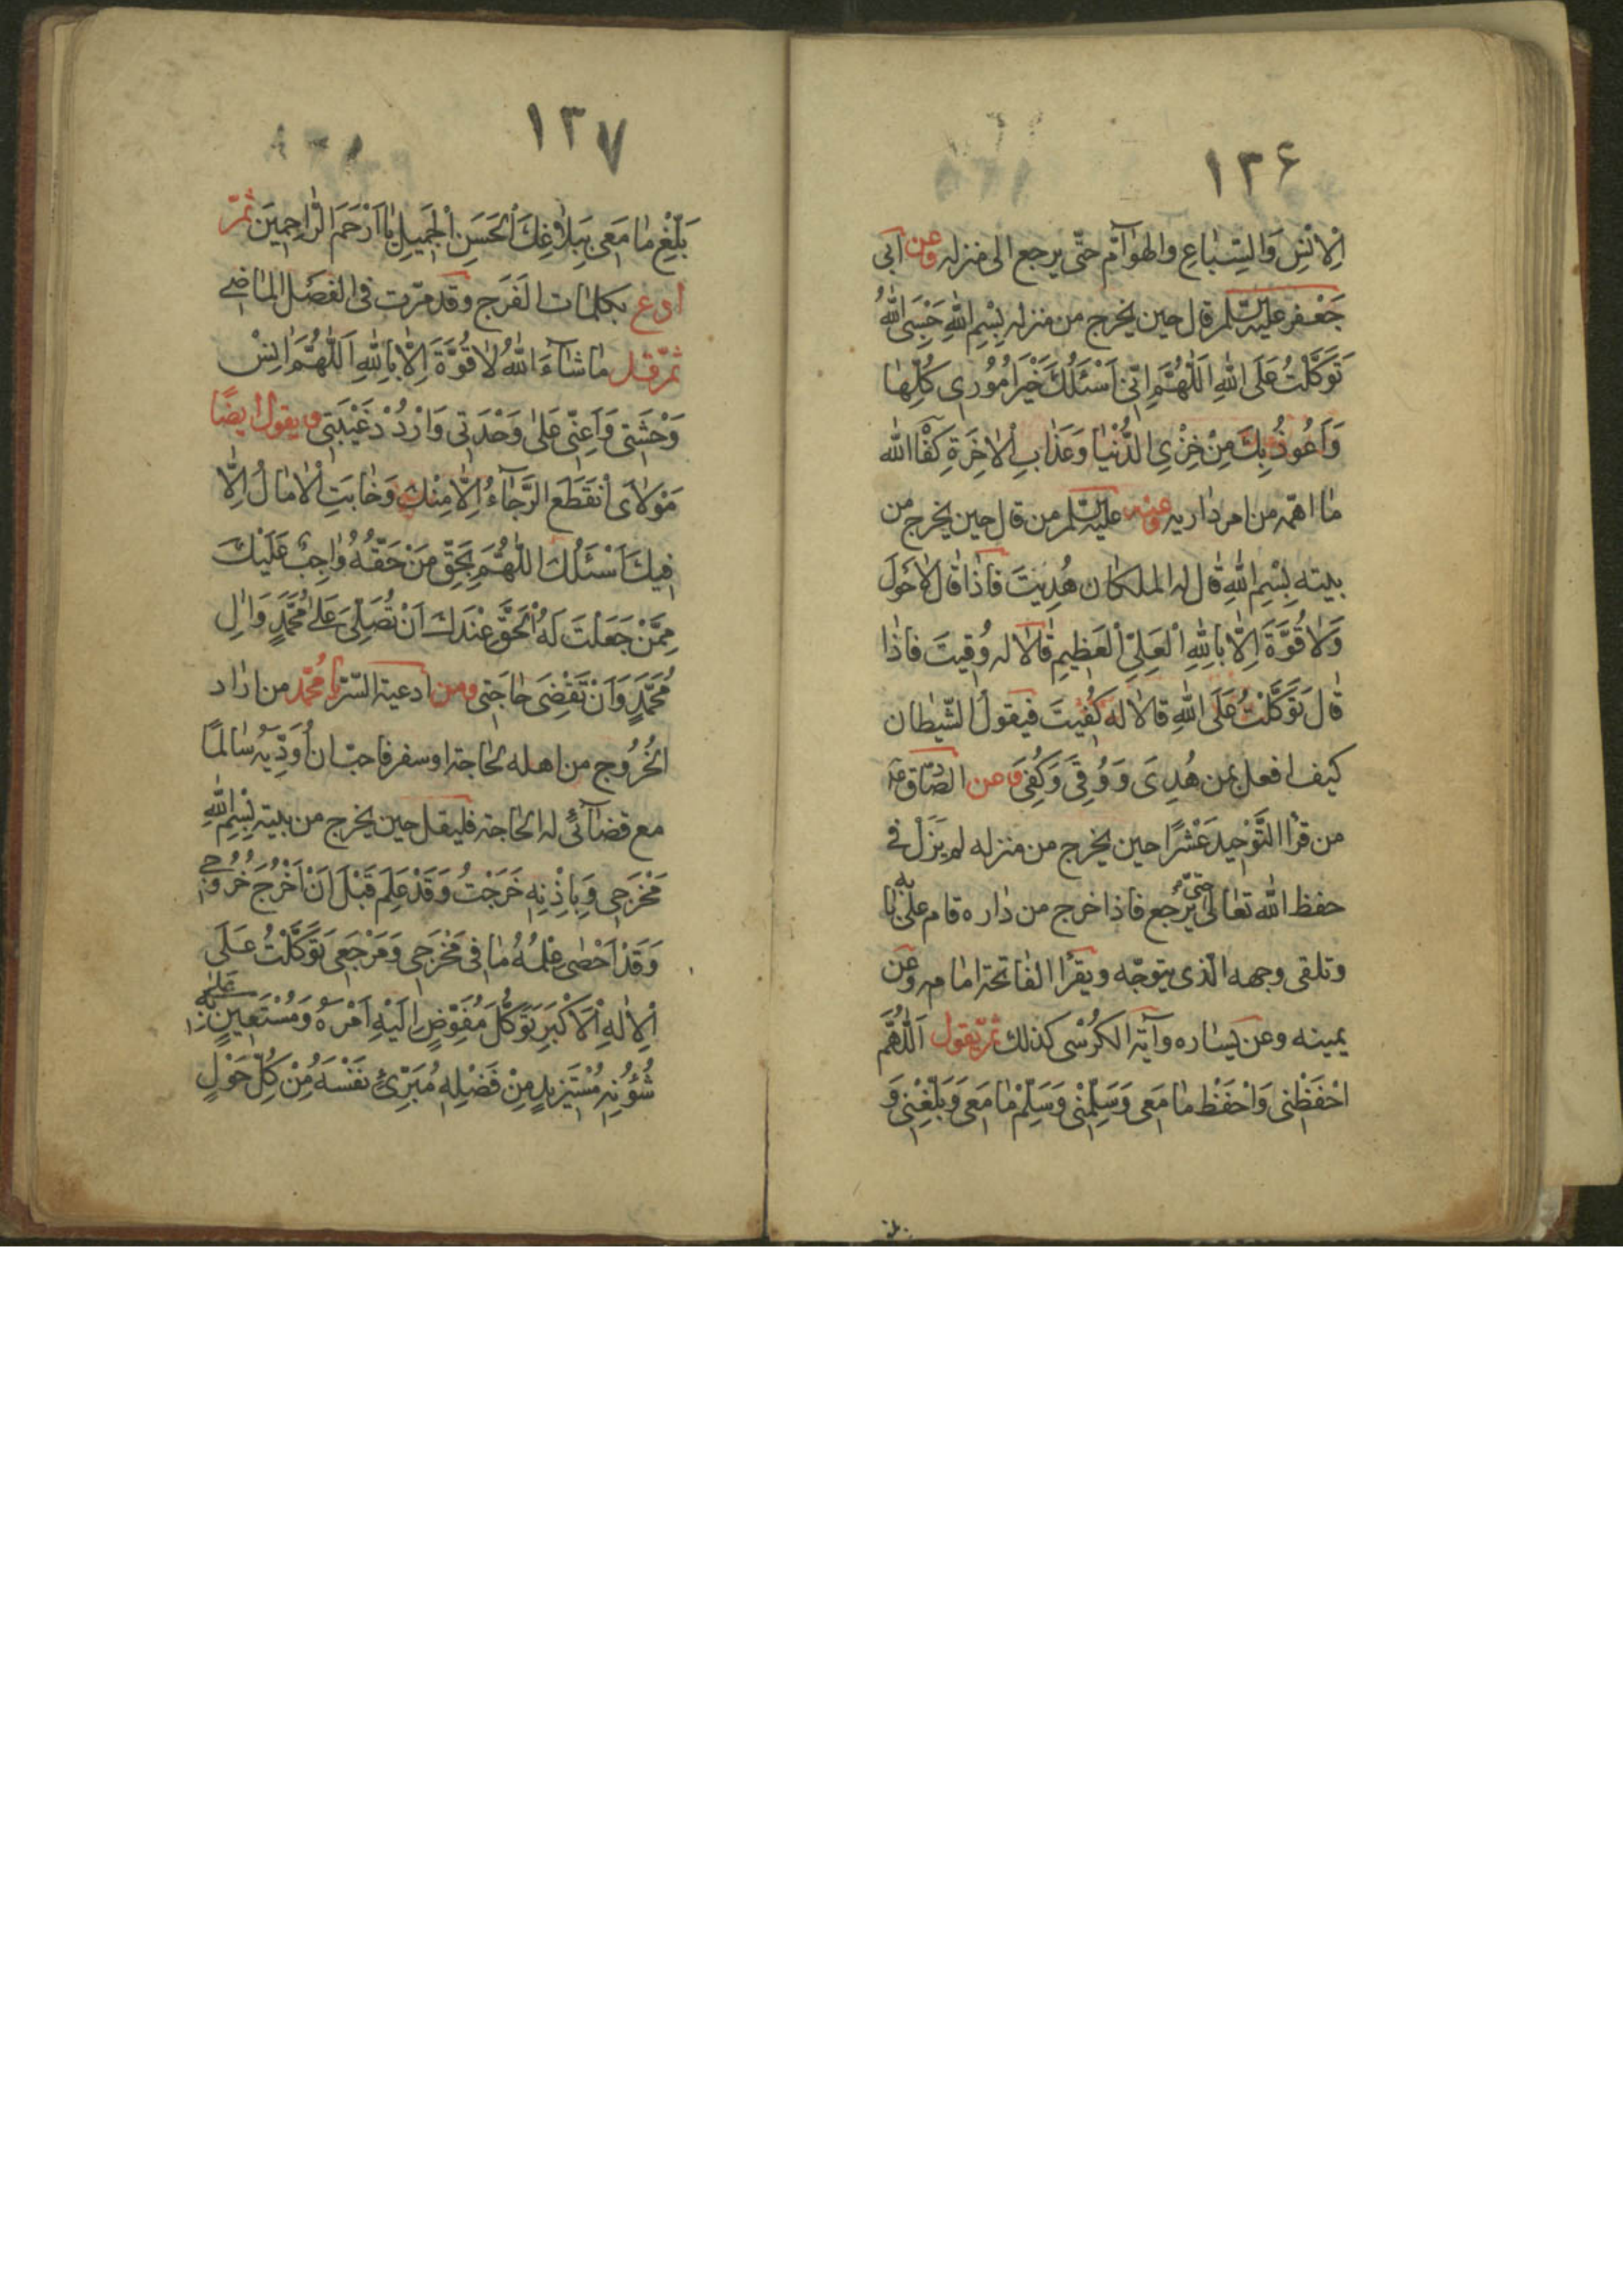 ١٣۶
اْلاِنْسِ وَالسِّبٰاعِ والهوٰآمّ حتّى يرجع الى منزله وعن ابى
جَعْفر عليه السّلم قٰال حين يخرج من منزله بِسْمِ اللّٰهِ حَسْبِىَ اللّٰهُ
تَوَكَّلْتُ عَلَى اللّٰهِ اَللّٰهُمَّ اِنّى اَسْئَلُكَ خَيْرَ اُمُوُرى كُلِّهٰا
وَاَعُوذُ بِكَ مِنْ خِزْىِ الدُّنْيٰا وَعَذٰابِ اْلاٰخِرَةِ كَفٰاْ اللّٰه
مٰا اهمّه من امر دٰاريه وعنه عليه السّلم من قال حين يخرج من
بيته بِسْمِ اللّٰهِ قٰال له الملكٰان هُدِيتَ فٰاذٰا قٰال لاٰحَوْلَ
وَلاٰ قُوَّةَ اِلاّٰ بِاللّٰهِ اْلعَلِىِّ اْلعَظِيمِ قٰالاٰ له وُقيتَ فاذٰا
قٰالَ تَوَكَّلْتُ عَلَى اللّٰهِ قالاٰ له كُفيتَ فيقولُ الشّيطٰان
كيف افعل بمن هُدِىَ وَوُقِىَ وَكُفِىَ وعن الصّادق عه
من قرٰا التَّوْحيد عَشْرًا حين يخرج من منزله لم يَزَلْ فى
حفظ اللّٰه تعٰالىٰ حتىّ يرجع فاذا خرج من دٰاره قام علىٰ بابه
وتلقى وجهه الّذى يتوجّه ويقرٰا الفٰاتحة امٰامه وعن
يمينه وعن يسٰاره وآية الكُرْسى كذلك ثمّ يقول اَللّٰهُمَّ
احْفَظْنى وَاحْفَظْ مٰا مَعى وَسَلِّمْنى وَسَلِّمْ مٰا مَعى وَبَلِّغْنى وَ
١٣٧
بَلِّغْ مٰا مَعى بِبَلاٰغِكَ اْلحَسَنِ اْلجَميلِ يٰا اَرْحَمَ الرّٰاحِمينَ ثمّ
ادع بكلمٰات الفَرَج وقد مرّت فى الفصَل المٰاضى
ثمّ قل مٰا شٰآءَ اللّٰهُ لاٰ قُوَّةَ اِلاّٰ بِاللّٰهِ اَللّٰهُمَّ اٰنِسْ
وَحْشَتى وَاَعِنّى عَلىٰ وَحْدَتى وَارْدُدْ غَيْبَتى ويقول ايضًا
مَوْلاٰىَ اْنقَطَعَ الرَّجٰآءُ اِلاّٰ مِنْكَ وَخٰابَتِ اْلاٰمٰالُ اِلاّٰ
فيكَ اَسْئَلُكَ اللّٰهُمَّ بِحَقِّ مَنْ حَقُّهُ وٰاجِبٌ عَلَيْكَ
مِمَّنْ جَعَلْتَ لَهُ اْلحَقَّ عِنْدَكَ اَنْ تُصَلِّىَ عَلىٰ مُحَمَّدٍ وَاٰلِ
مُحَمَّدٍ وَاَنْ تَقْضِىَ حٰاجَتى ومن ادعية السّرّ يا مُحَمّد من ارٰاد
الخُرُوج من اهله لحٰاجة او سفر فاحبّ ان اُوَدّيَهُ سٰالمًا
مع قضٰآئى له الحٰاجة فليقل حين يخرج من بيته بِسْمِ اللّٰهِ
مَخْرَجى وَبِاِذْنِه خَرَجْتُ وَقَدْ عَلِمَ قَبْلَ اَنْ اَخْرُجَ خُرُوُجى
وَقَدْ اَحْصٰى عِلْمُهُ مٰا فى مَخْرَجى وَمَرْجَعى تَوَكَّلْتُ عَلَى
اْلاِلٰهِ اْلاَكْبَرِ تَوَكُّلَ مُفَوِّضٍ اِلَيْهِ اَمْرَهُ وَمُسْتَعينٍ بِهِ عَلىٰ
شُؤُنِهِ مُسْتَزيدٍ مِنْ فَضْلِه مُبَرِّئٍ نَفْسَهُ مِنْ كُلِّ حَوْلٍ